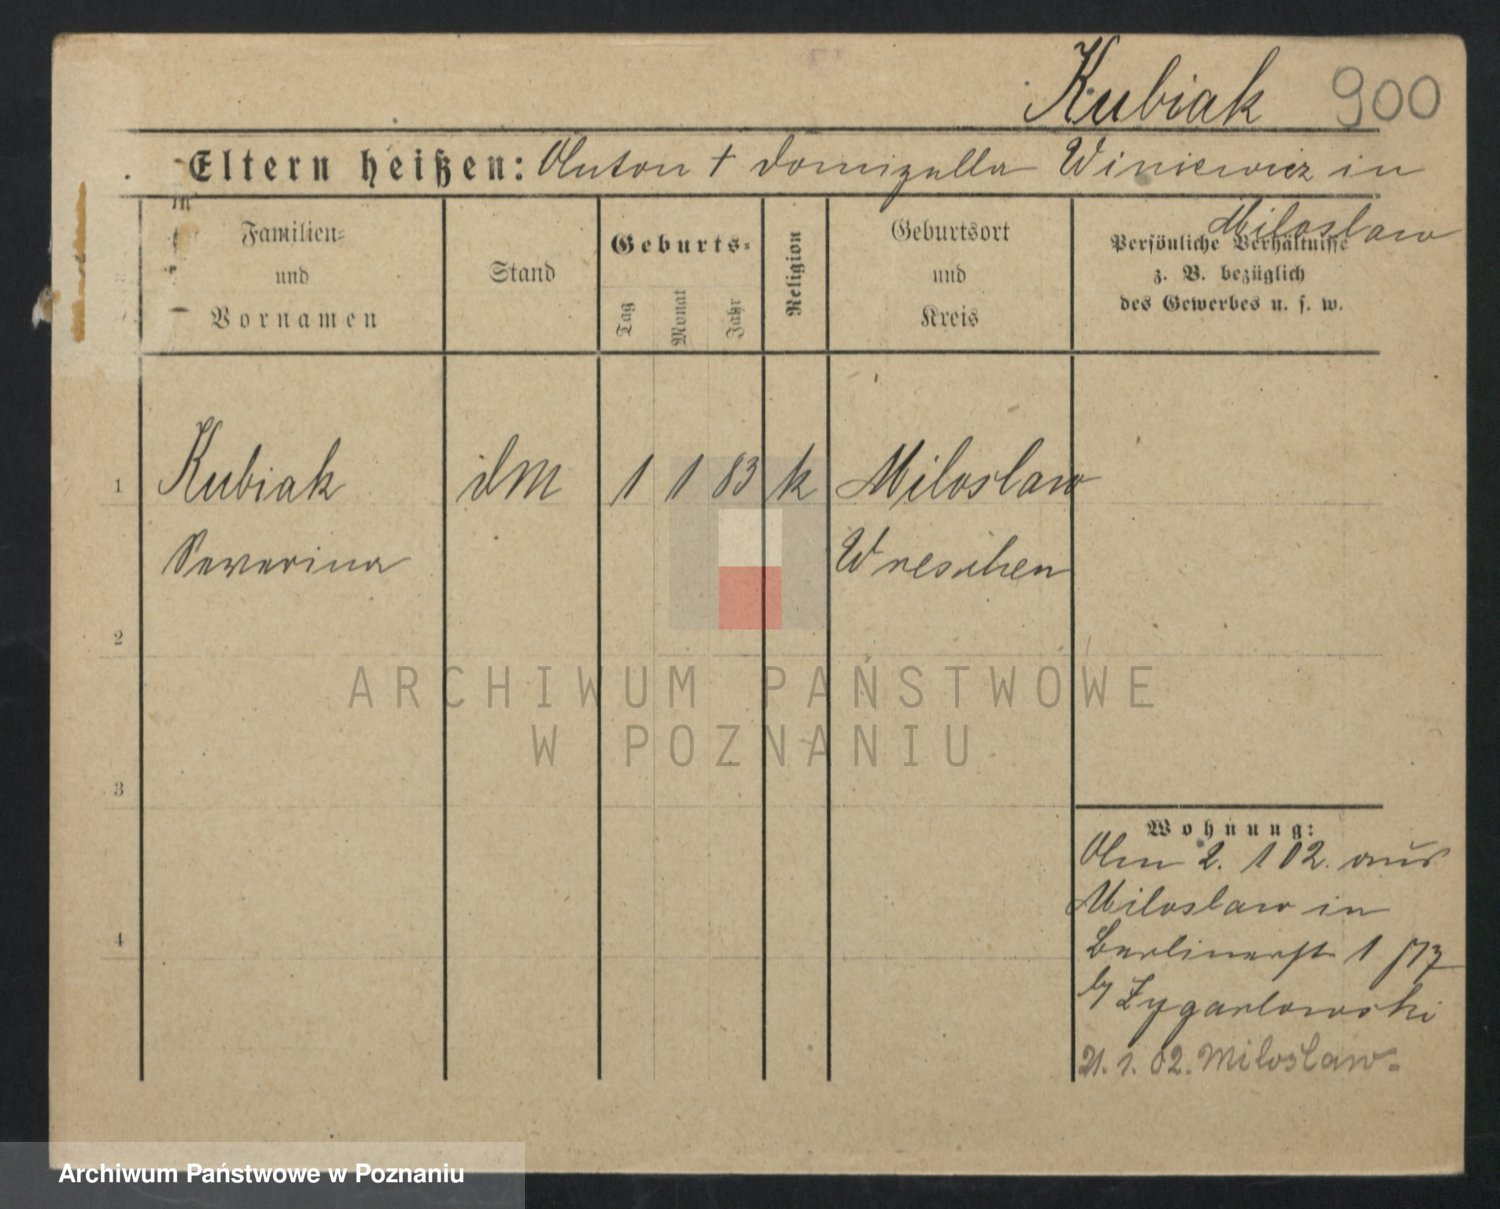 Kubiak 900
Eltern heißen: Anton + Domizella Winiewicz in
Miloslaw
Familien-
und
Vornamen
Stand
Geburts-
Tag
Monat
Jahr
Religion
Geburtsort
und
Kreis
Persönliche Verhältnisse
z. B. bezüglich
des Gewerbes u. s. w.
1 Kubiak dM 1 1 83 k Miloslaw
Severina Wreschen
2
3
4
Wohnung:
Am 2. 1 02. aus
Miloslaw in
Berlinerst 1
b/ Zygarlowski
21. 1. 02. Miloslaw.
ARCHIWUM PAŃSTWOWE
W POZNANIU
Archiwum Państwowe w Poznaniu